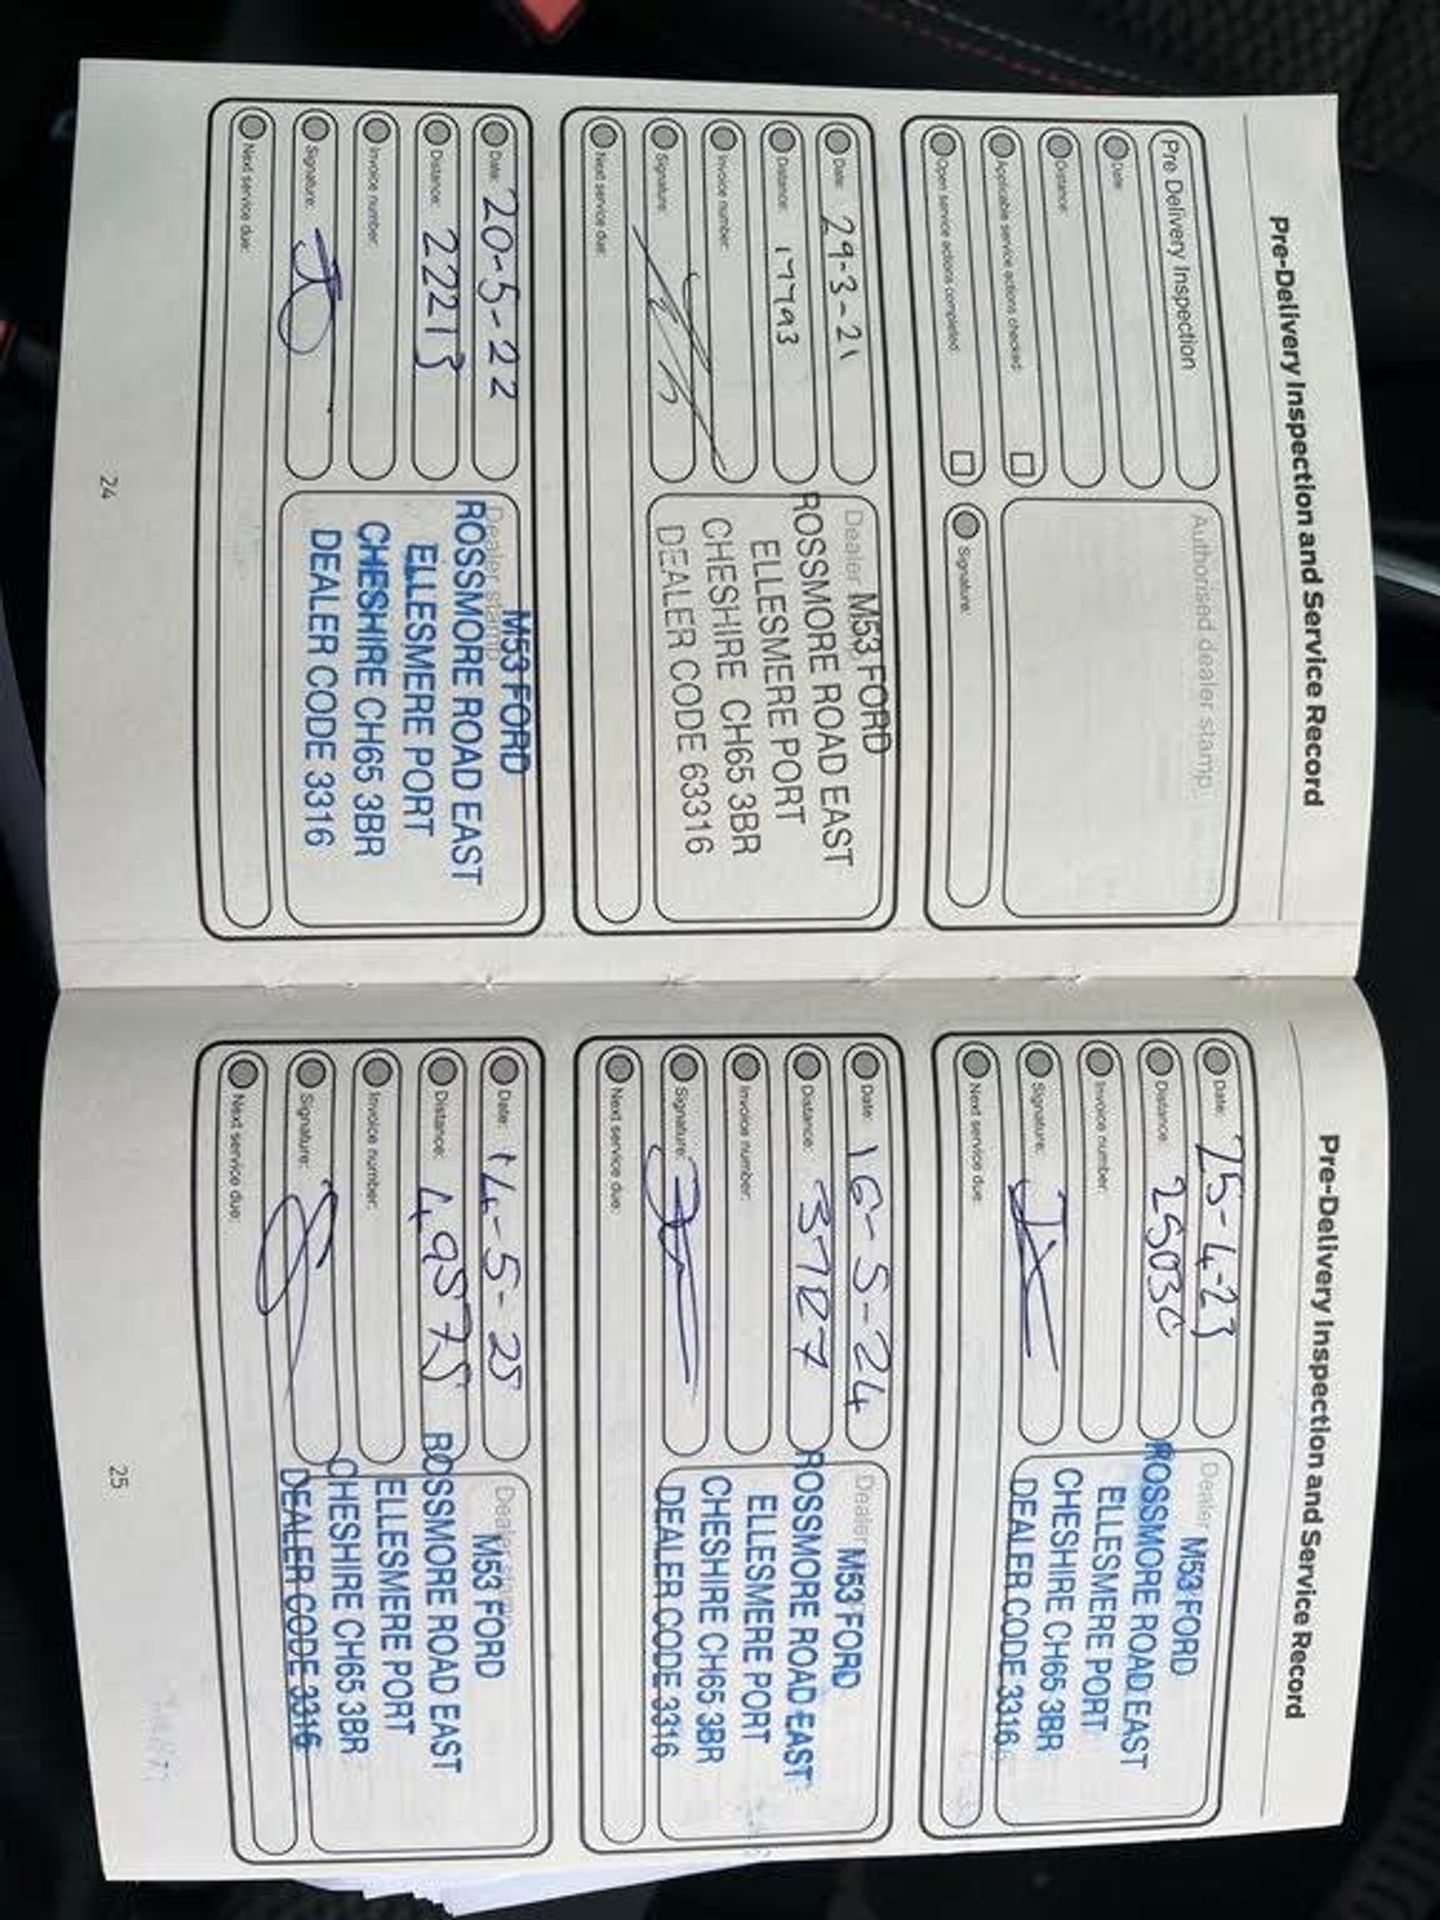 Pre-Delivery Inspection and Service Record
Pre Delivery Inspection
Date:
Distance:
Applicable service actions checked:
Open service actions completed:
Authorised dealer stamp:
Signature:
Date: 29-3-21
Distance: 17793
Invoice number:
Signature:
Next service due:
Dealer
M53 FORD
ROSSMORE ROAD EAST
ELLESMERE PORT
CHESHIRE CH65 3BR
DEALER CODE 63316
Date: 20-5-22
Distance: 22213
Invoice number:
Signature:
Next service due:
Dealer stamp
M53 FORD
ROSSMORE ROAD EAST
ELLESMERE PORT
CHESHIRE CH65 3BR
DEALER CODE 3316
24
Pre-Delivery Inspection and Service Record
Date: 25-4-23
Distance: 25030
Invoice number:
Signature:
Next service due:
Dealer
M53 FORD
ROSSMORE ROAD EAST
ELLESMERE PORT
CHESHIRE CH65 3BR
DEALER CODE 3316
Date: 16-5-24
Distance: 37127
Invoice number:
Signature:
Next service due:
Dealer
M53 FORD
ROSSMORE ROAD EAST
ELLESMERE PORT
CHESHIRE CH65 3BR
DEALER CODE 3316
Date: 14-5-25
Distance: 49575
Invoice number:
Signature:
Next service due:
Dealer stamp
M53 FORD
ROSSMORE ROAD EAST
ELLESMERE PORT
CHESHIRE CH65 3BR
DEALER CODE 3316
25